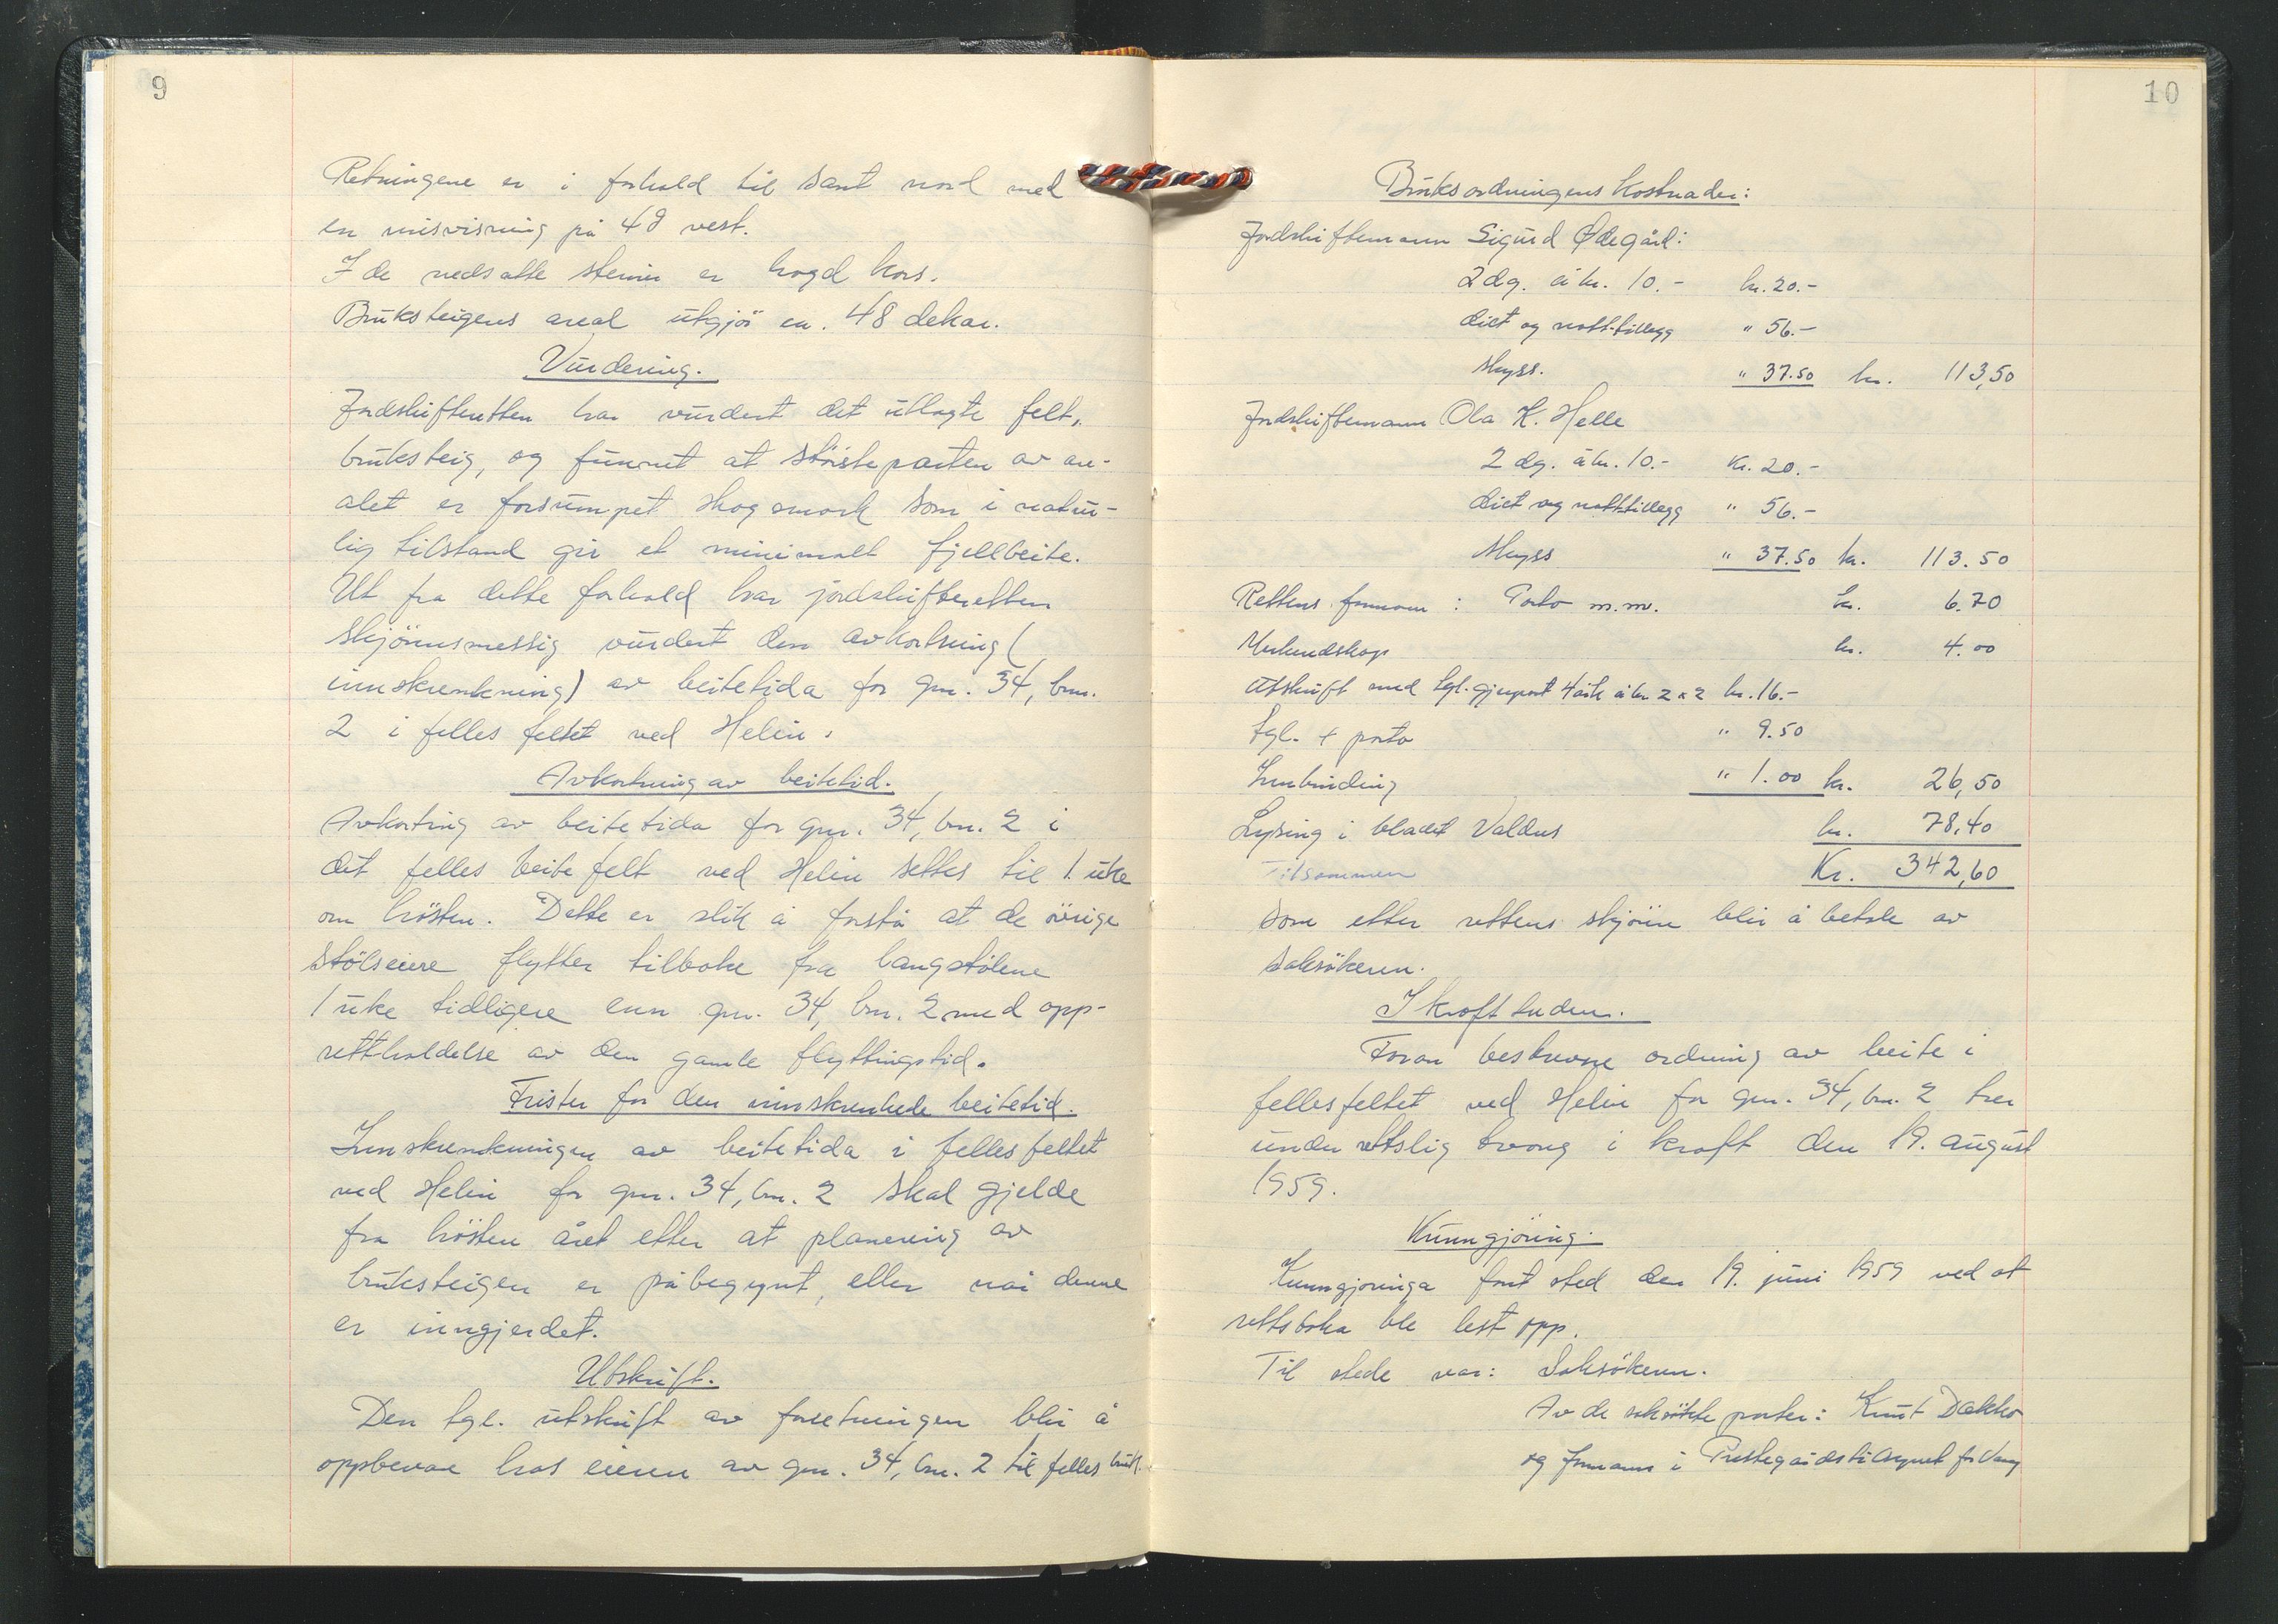 9
Retningene er i forhold til sant nord med
en misvisning på 4g vest.
I de nedsatte steiner er hogd kors.
Bruksteigens areal utgjör ca. 48 dekar.
Vurdering.
Jordskifteretten har vurdert det utlagte felt,
bruksteig, og funnet at störsteparten av are-
alet er forsumpet skogsmark som i natur-
lig tilstand gir et minimalt fjellbeite.
Ut fra dette forhold har jordskifteretten
skjönnsmessig vurdert den avkortning (
innskrenkning) av beitetida for gnr. 34, bnr.
2 i felles feltet ved Helin.
Avkortning av beitetid.
Avkorting av beitetida for gnr. 34, bnr. 2 i
det felles beitefelt ved Helin settes til 1 uke
om hösten. Dette er slik å forstå at de övrige
stölseiere flytter tilbake fra langstölene
1 uke tidligere enn gnr. 34, bnr. 2 med opp-
rettholdelse av den gamle flyttingstid.
Frister for den innskrenkede beitetid.
Innskrenkningen av beitetida i fellesfeltet
ved Helin for gnr. 34, bnr. 2 skal gjelde
fra hösten året etter at planering av
bruksteigen er påbegynt, eller når denne
er inngjerdet.
Utskrift.
Den tgl. utskrift av forretningen blir å
oppbevare hos eieren av gnr. 34, bnr. 2 til felles bruk.
10
Bruksordningens kostnader:
Jordskiftemann Sigurd Ødegård:
2 dg. à kr. 10.- kr. 20.-
diet og natt-tillegg " 56.-
skyss. " 37.50 kr. 113,50
Jordskiftemann Ola K. Helle
2 dg. à kr. 10.- Kr. 20.-
diet og natt-tillegg " 56.-
skyss " 37.50 kr. 113.50
Rettens formann : Porto m.m. kr. 6.70
Merkundskap kr. 4.00
Utskrift med tgl. gjenpart 4 ark à kr. 2 x 2 kr. 16.-
Tgl. + porto " 9.50
Innbinding " 1.00 kr. 26,50
Lysing i bladet Valdres kr. 78,40
Tilsammen Kr. 342,60
som etter rettens skjönn blir å betale av
saksökeren.
Ikrafttreden.
Foran beskrevne ordning av beite i
fellesfeltet ved Helin for gnr. 34, bnr. 2 trer
under rettslig tvang i kraft den 19. august
1959.
Kunngjöring.
Kunngjöringa fant sted den 19. juni 1959 ved at
rettsboka ble lest opp.
Til stede var: Saksökeren.
Av de saksökte parter: Knut Døkko
og formann i Prestegårdstilsynet for Vang